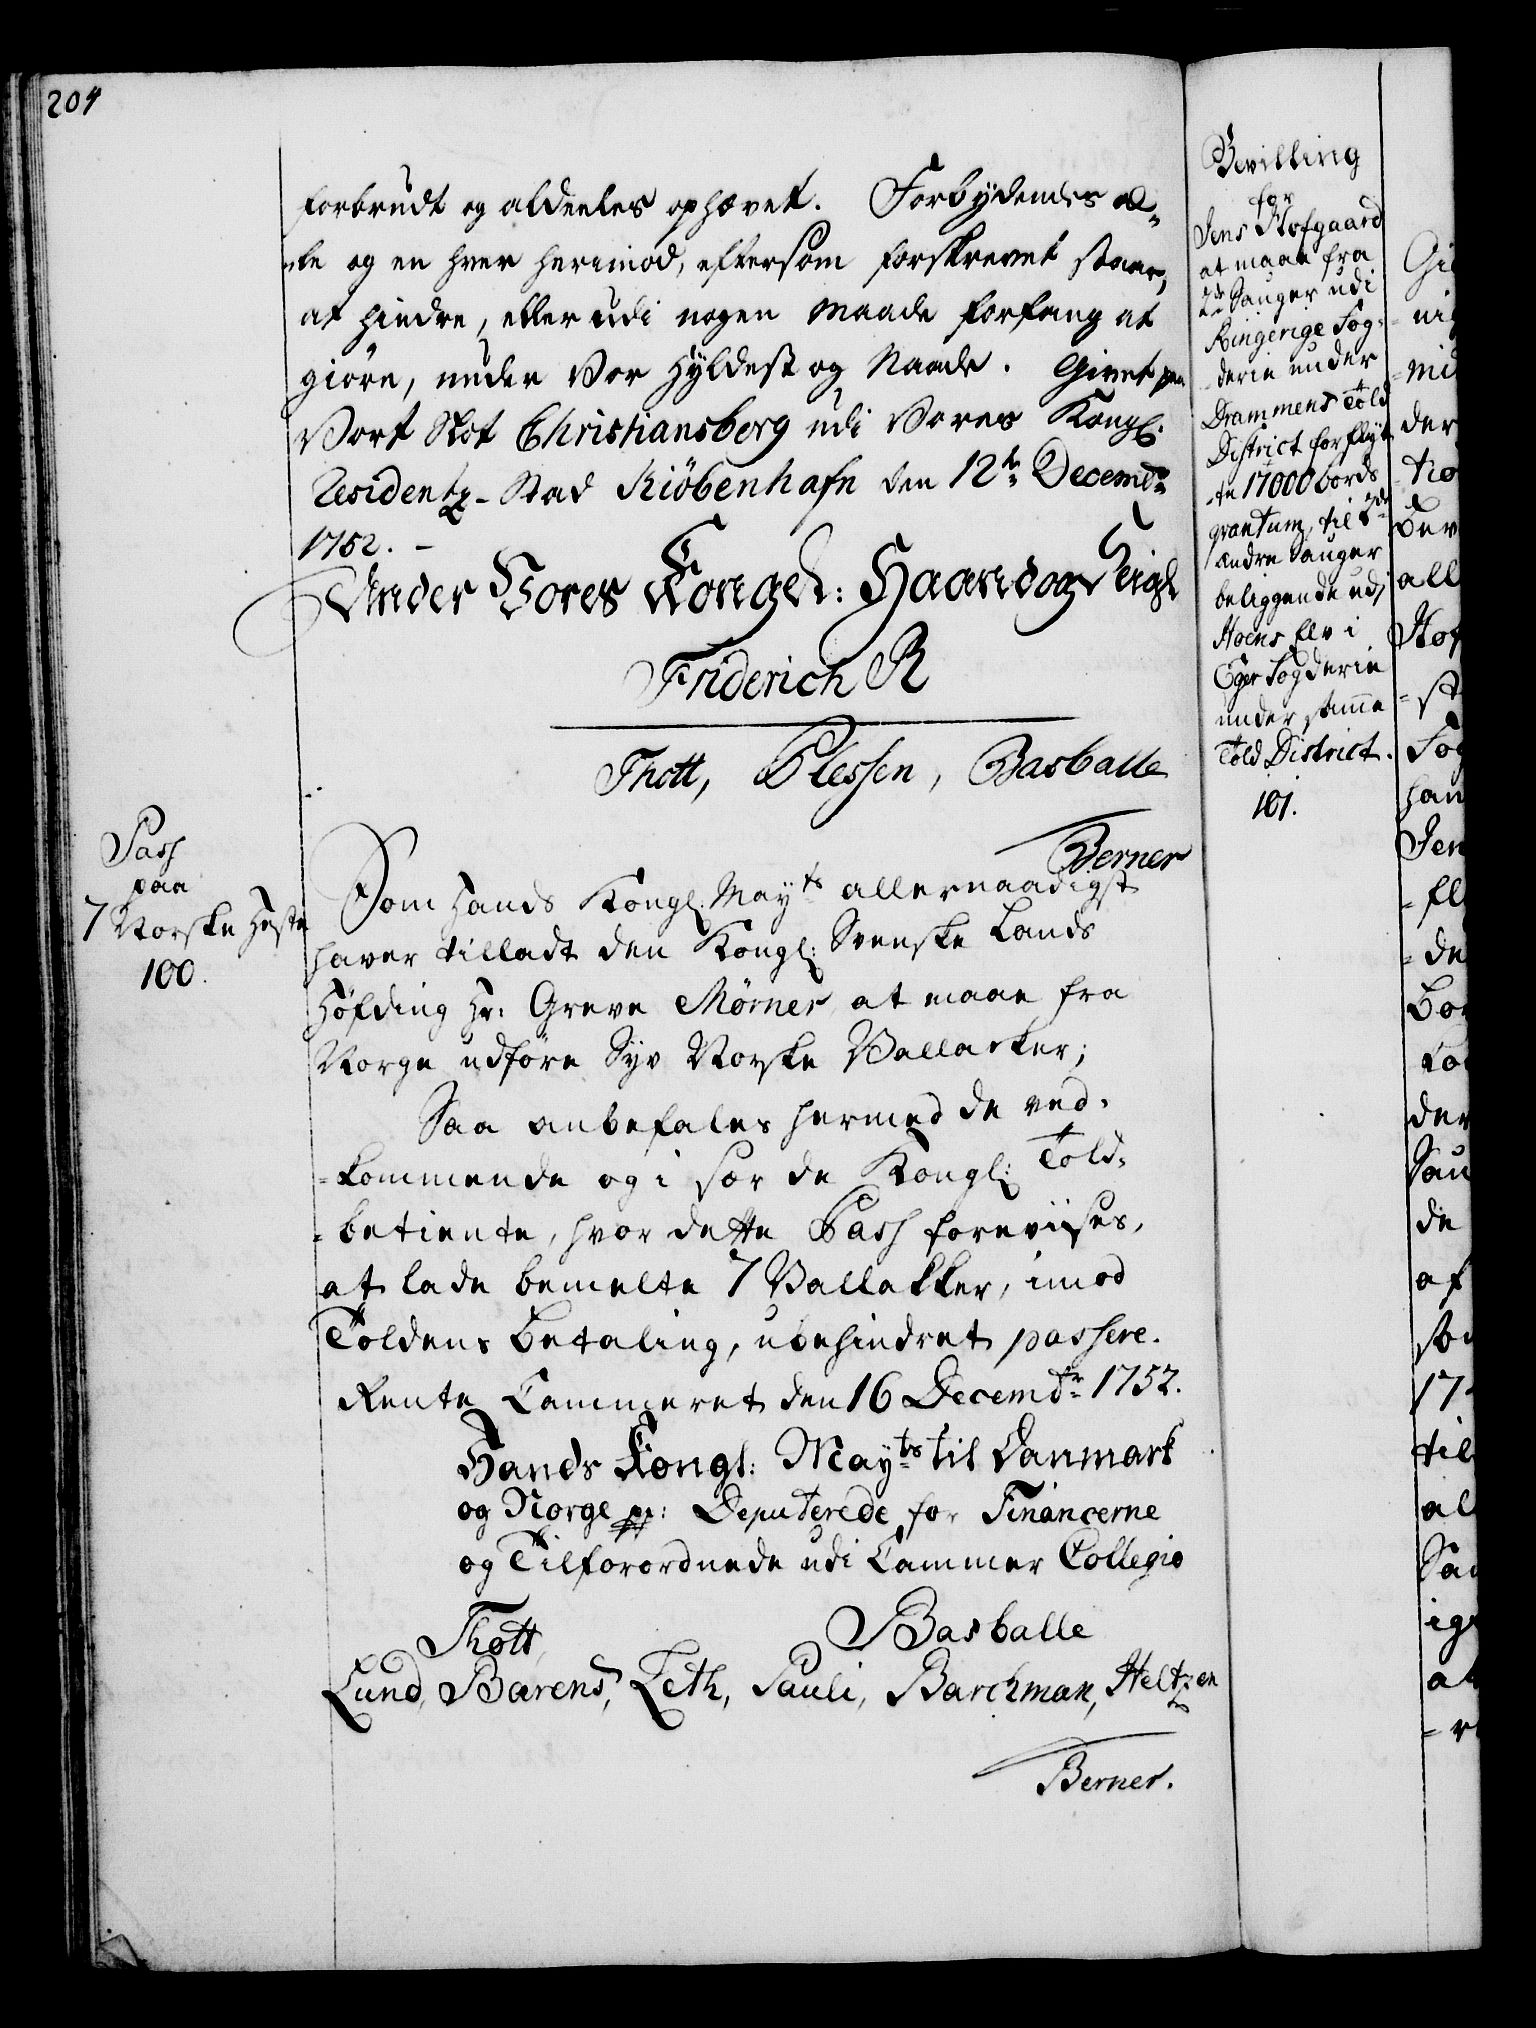 204
forbrudt og aldeeles ophævet. Forbydendes al-
-le og en hver herimod, eftersom forskrevet staar,
at hindre, eller udi nogen Maade forfang at
giøre, under Vor Hyldest og Naade. Givet paa
Vort Slot Christiansborg udi Vores Kongl:
Residentz-Stad Kiöbenhafn den 12te Decembr
1752. -
Under Vores Kongel: Haand og Seigl
Friderich R
Thott, Plessen, Basballe
Berner
Pass
paa
7 Norske Heste
100.
Som Hands Kongl. Mayts allernaadigst
haver tilladt den Kongl: Svenske Lands
Höfding Hr: Greve Mörner, at maae fra
Norge udföre Syv Norske Vallacker;
Saa anbefales hermed de ved-
-kommende og i sær de Kongl: Told-
-betiente, hvor dette Pass foreviises,
at lade bemelte 7 Vallakker, imod
Toldens Betaling, ubehindret passere.
Rente Cammeret den 16 Decembr 1752.
Hands Kongl: Mayts til Danmark
og Norge pp: Deputerede for Financerne
og Tilforordnede udi Cammer Collegio
Thott, Basballe
Lund, Barens, Leth, Pauli, Barchman, Heltzen
Berner.
Bevilling
for
Jens Hofgaard
at maae fra
2de Sauger udi
Ringerige Fog-
derie under
Drammens Told
District forflyt-
te 17000 bords
qvantum, til 2de
andre Sauger
beliggende udi
Hoens Elv i
Eger Fogderie
under samme
Told District.
101.